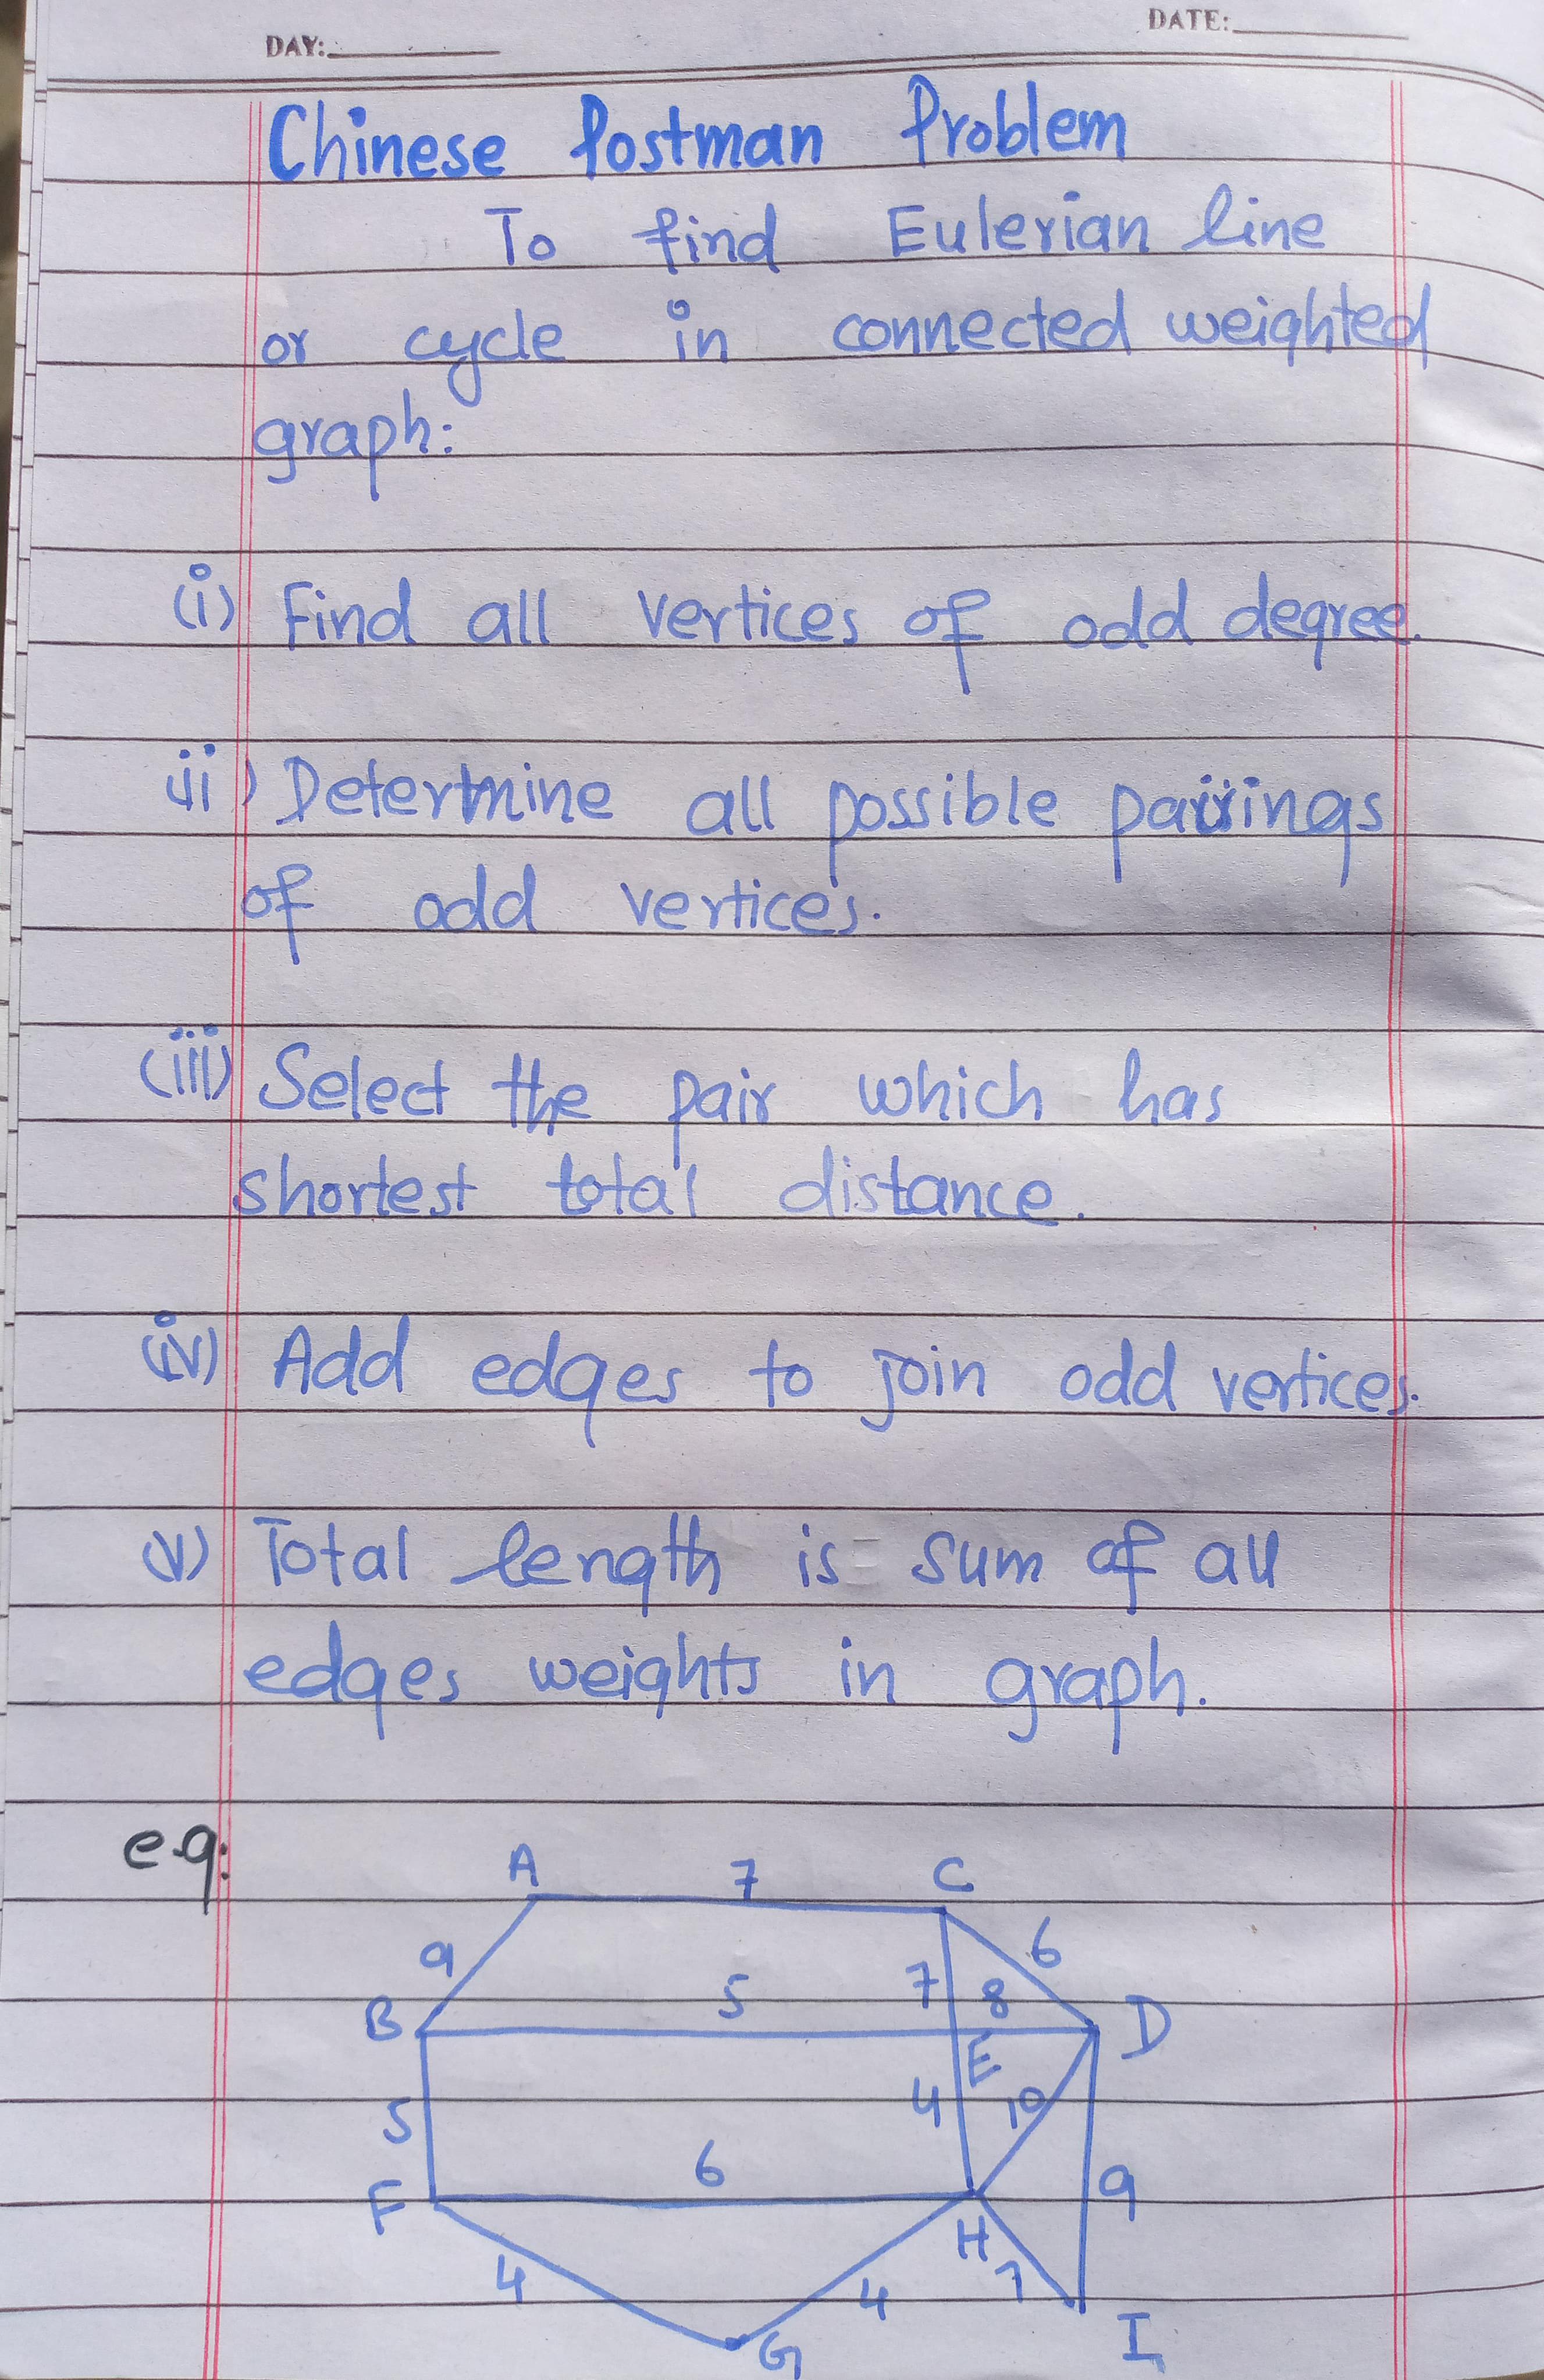 DAY:
DATE:
Chinese Postman Problem
To find Eulerian line
or cycle in connected weighted
graph:
(i) Find all vertices of odd degree.
ii) Determine all possible pairings
of odd vertices.
(iii) Select the pair which has
shortest total distance.
(iv) Add edges to join odd vertices.
(v) Total length is sum of all
edges weights in graph.
e.g:
A 7 C
9 6
5 7 8
B D
E
5 4 10
6 9
F
H
4 4 7
G I